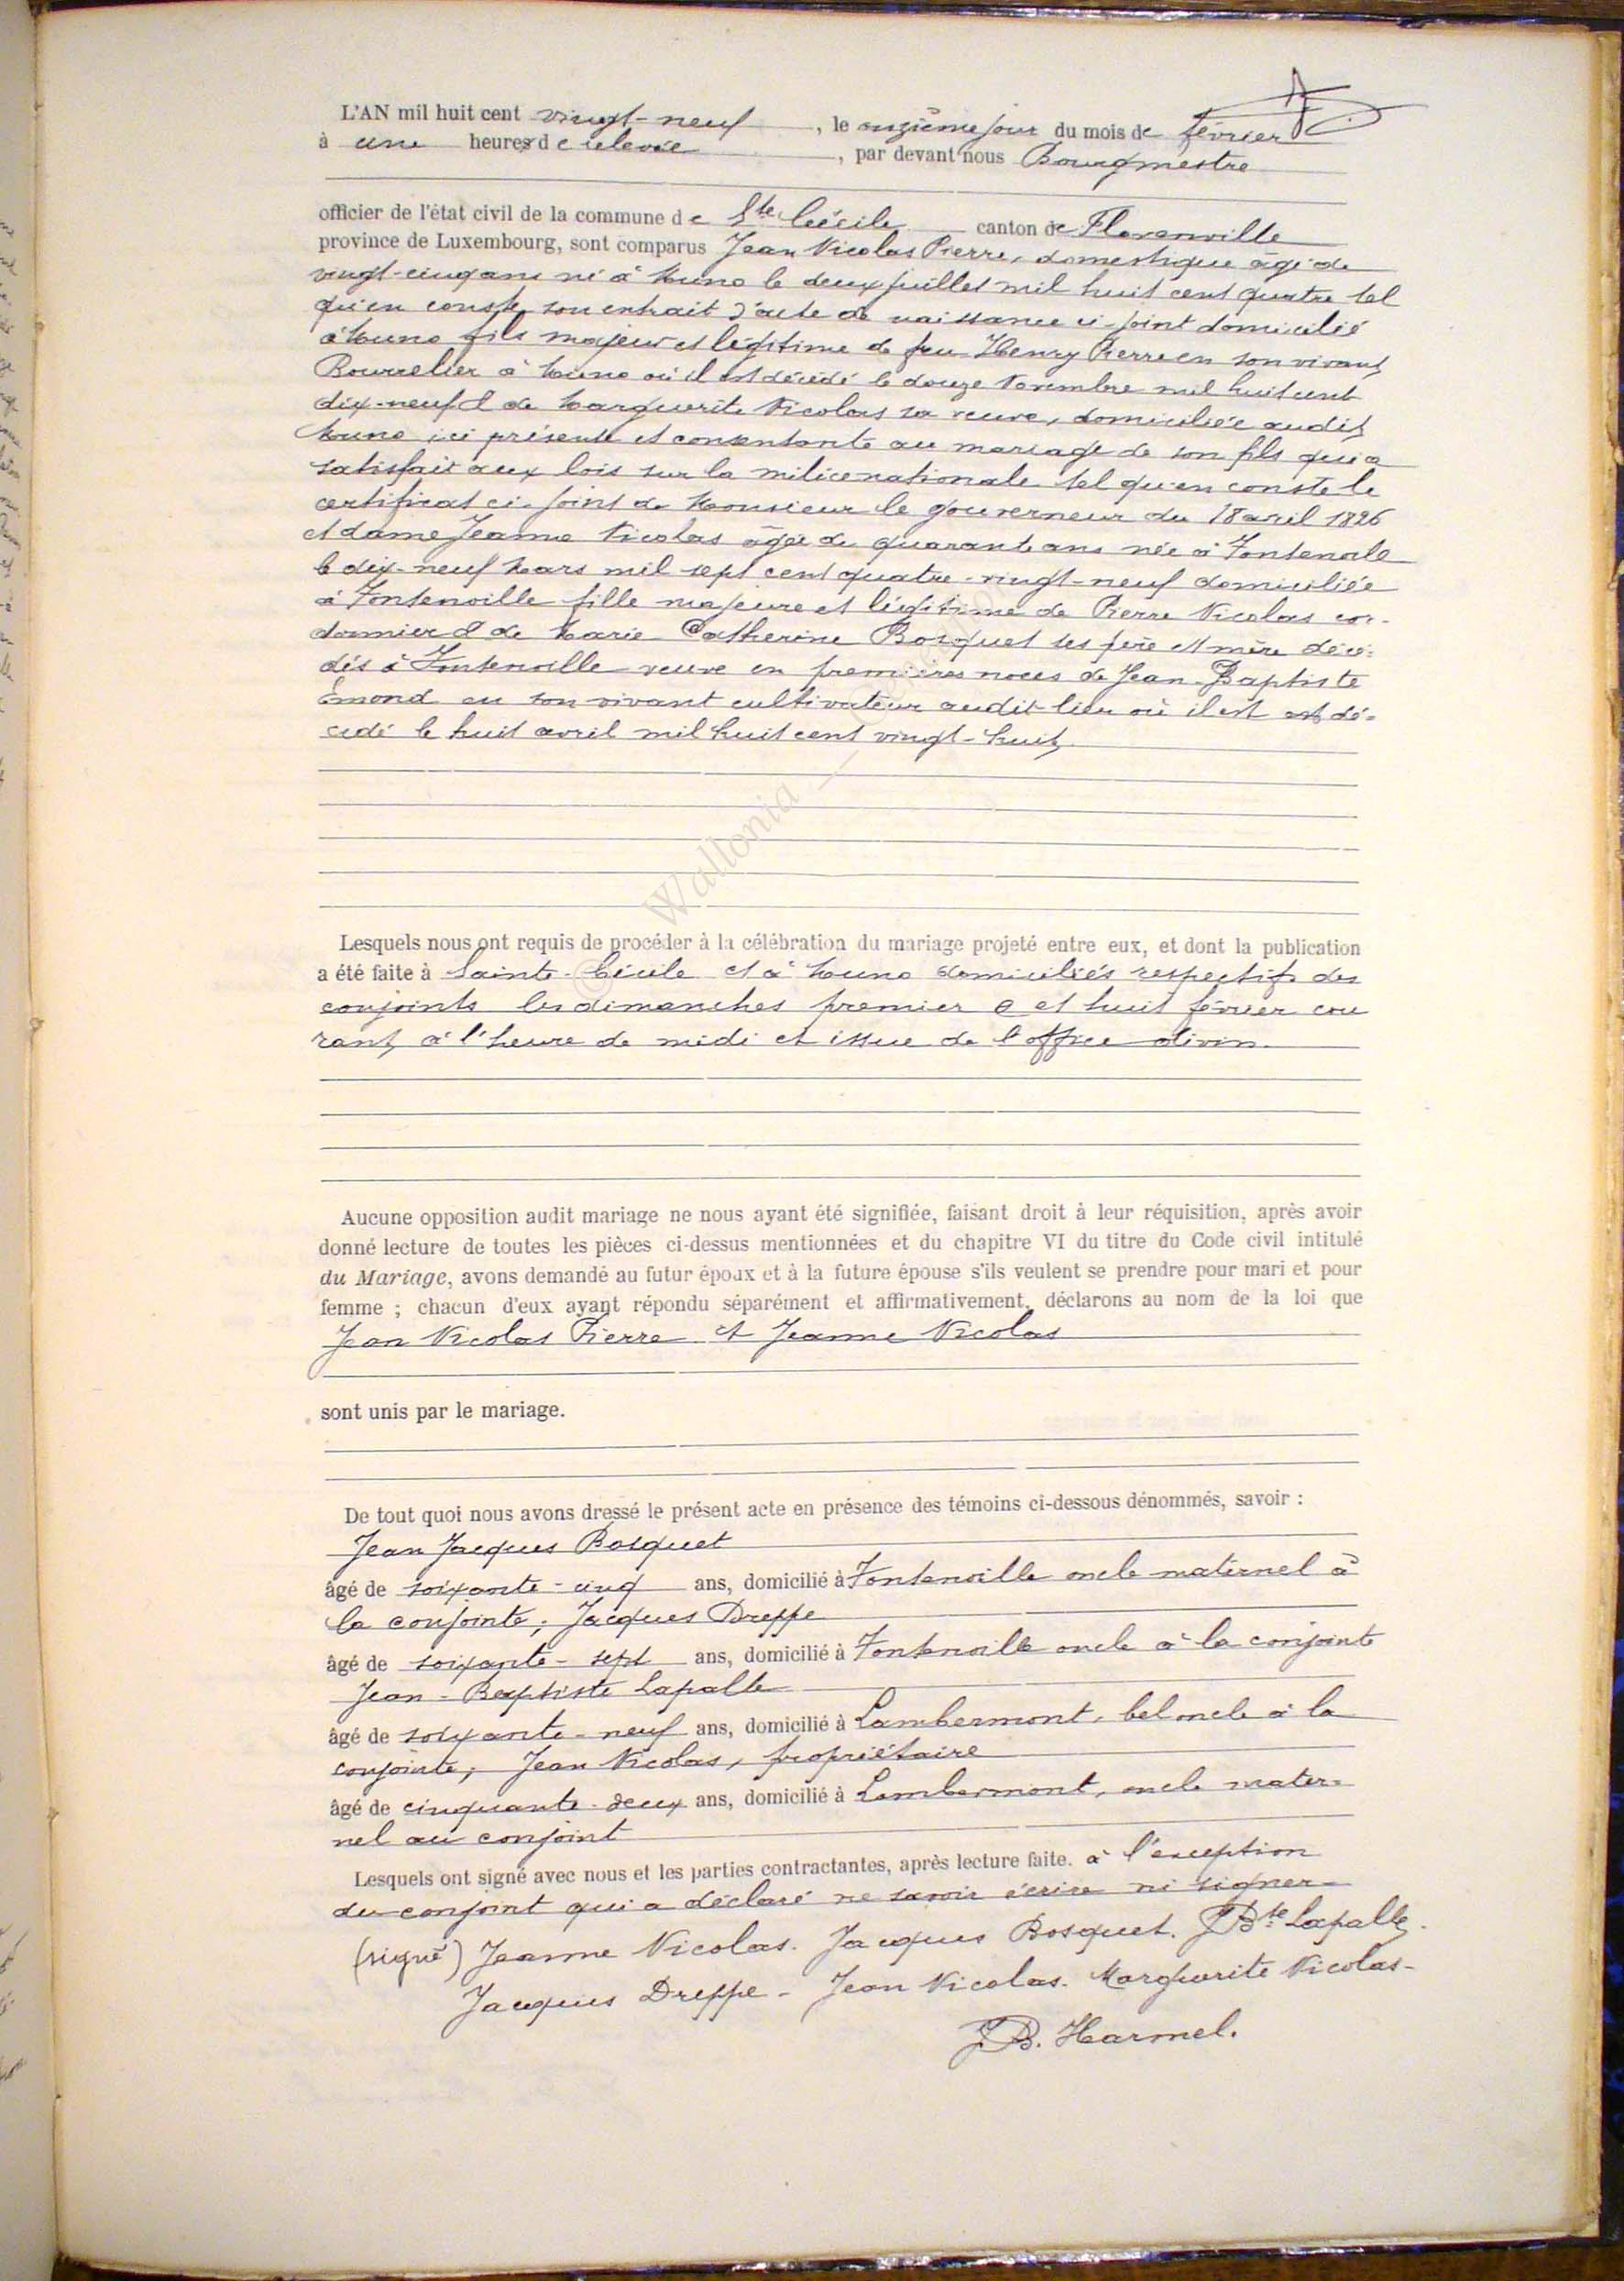 L'AN mil huit cent vingt-neuf, le onzième jour du mois de février
à une heures de relevée, par devant nous Bourgmestre
officier de l'état civil de la commune de Ste Cécile canton de Florenville
province de Luxembourg, sont comparus Jean Nicolas Pierre, domestique âgé de
vingt-cinq ans né à Muno le deux juillet mil huit cent quatre tel
qu'en conste son extrait d'acte de naissance ci-joint domicilié
à Muno fils majeur et légitime de feu Henry Pierre en son vivant
Bourrelier à Muno où il est décédé le douze Novembre mil huit cent
dix-neuf & de Marguerite Nicolas sa veuve, domiciliée audit
Muno ici présente et consentante au mariage de son fils qui a
satisfait aux lois sur la milice nationale tel qu'en conste le
certificat ci-joint de Monsieur le gouverneur du 18 avril 1826
et dame Jeanne Nicolas âgée de quarante ans née à Fontenoile
le dix-neuf Mars mil sept cent quatre-vingt-neuf domiciliée
à Fontenoille fille majeure et légitime de Pierre Nicolas cor-
donnier & de Marie Catherine Bosquet ses père et mère décé=
dés à Fontenoille veuve en premières noces de Jean-Baptiste
Emond en son vivant cultivateur audit lieu où il est est dé=
cédé le huit avril mil huit cent vingt-huit
Lesquels nous ont requis de procéder à la célébration du mariage projeté entre eux, et dont la publication
a été faite à Sainte-Cécile et à Muno domiciliés respectifs des
conjoints les dimanches premier et huit février cou
rant, à l'heure de midi et issue de l'office divin.
Aucune opposition audit mariage ne nous ayant été signifiée, faisant droit à leur réquisition, après avoir
donné lecture de toutes les pièces ci-dessus mentionnées et du chapitre VI du titre du Code civil intitulé
du Mariage, avons demandé au futur époux et à la future épouse s'ils veulent se prendre pour mari et pour
femme ; chacun d'eux ayant répondu séparément et affirmativement, déclarons au nom de la loi que
Jean Nicolas Pierre et Jeanne Nicolas
sont unis par le mariage.
De tout quoi nous avons dressé le présent acte en présence des témoins ci-dessous dénommés, savoir :
Jean Jacques Bosquet
âgé de soixante-cinq ans, domicilié à Fontenoille oncle maternel à
la conjointe; Jacques Dreppe
âgé de soixante-sept ans, domicilié à Fontenoille oncle à la conjointe
Jean-Baptiste Lapalle
âgé de soixante-neuf ans, domicilié à Lambermont, bel oncle à la
conjointe; Jean Nicolas, propriétaire
âgé de cinquante-deux ans, domicilié à Lambermont, oncle mater=
nel au conjoint
Lesquels ont signé avec nous et les parties contractantes, après lecture faite. à l'exception
du conjoint qui a déclaré ne savoir écrire ni signer-
(signé) Jeanne Nicolas. Jacques Bosquet. JBte Lapalle.
Jacques Dreppe - Jean Nicolas. Marguerite Nicolas-
JB. Harmel.
© Wallonia